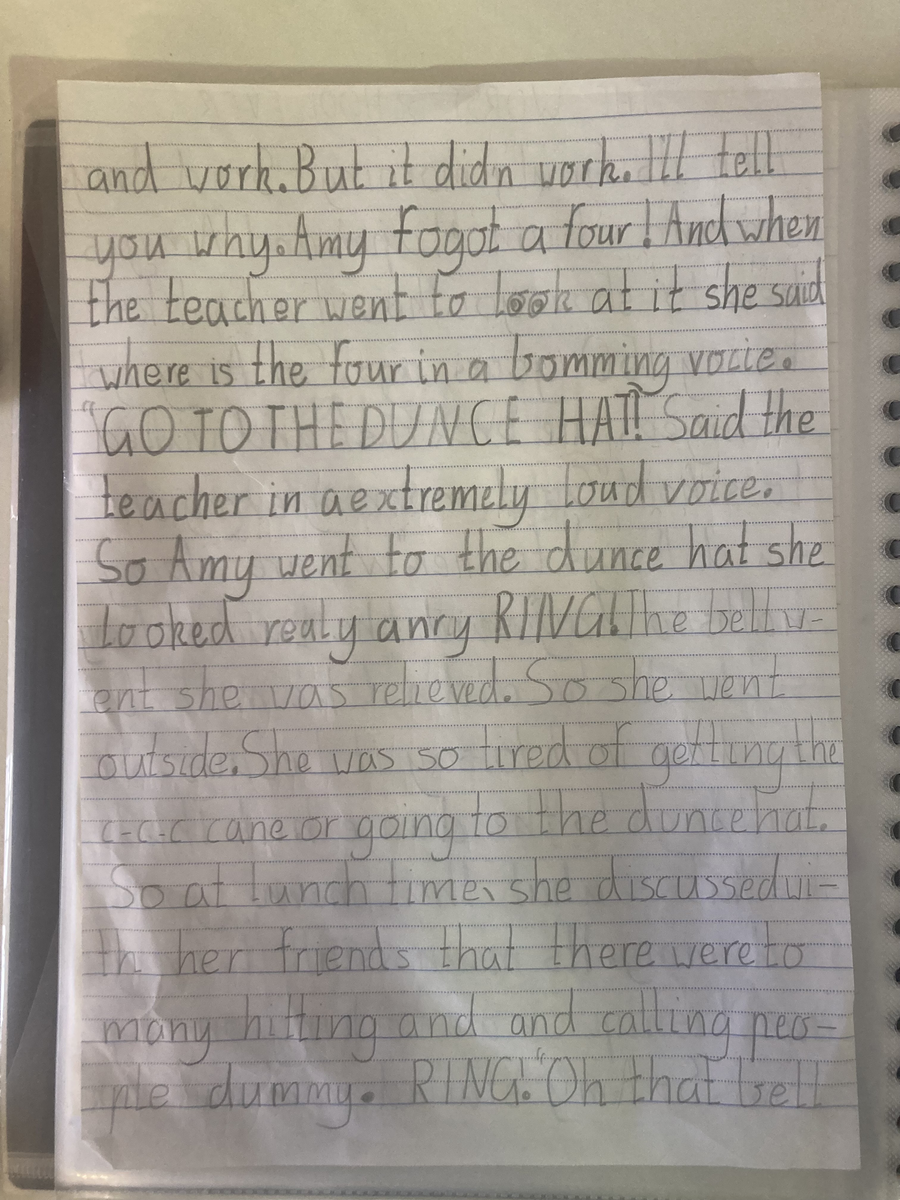 and work. But it didn work. I'll tell
you why. Amy fogot a four! And when
the teacher went to look at it she said
where is the four in a bomming vocie.
"GO TO THE DUNCE HAT!" Said the
teacher in a extremely loud voice.
So Amy went to the dunce hat she
looked realy anry RING! The bell w-
ent she was relieved. So she went
outside. She was so tired of getting the
c-c-c cane or going to the dunce hat.
So at lunch time, she discussed wi-
th her friends that there were to
many hitting and and calling peo-
ple dummy. RING! "Oh that bell